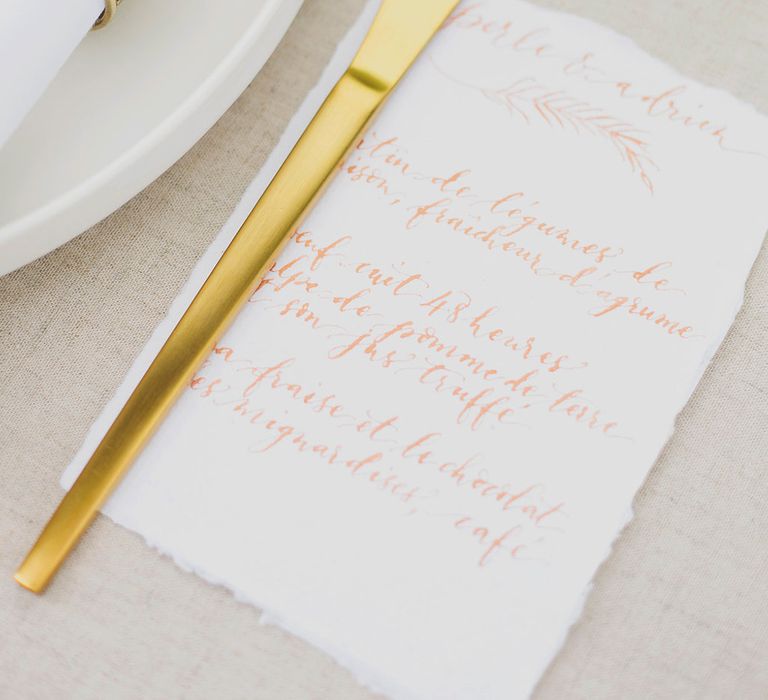 perle & adrien
de légumes de
fraîcheur d'agrume
cuit 48 heures
de pomme de terre
son jus truffé
fraise et le chocolat
mignardises, café